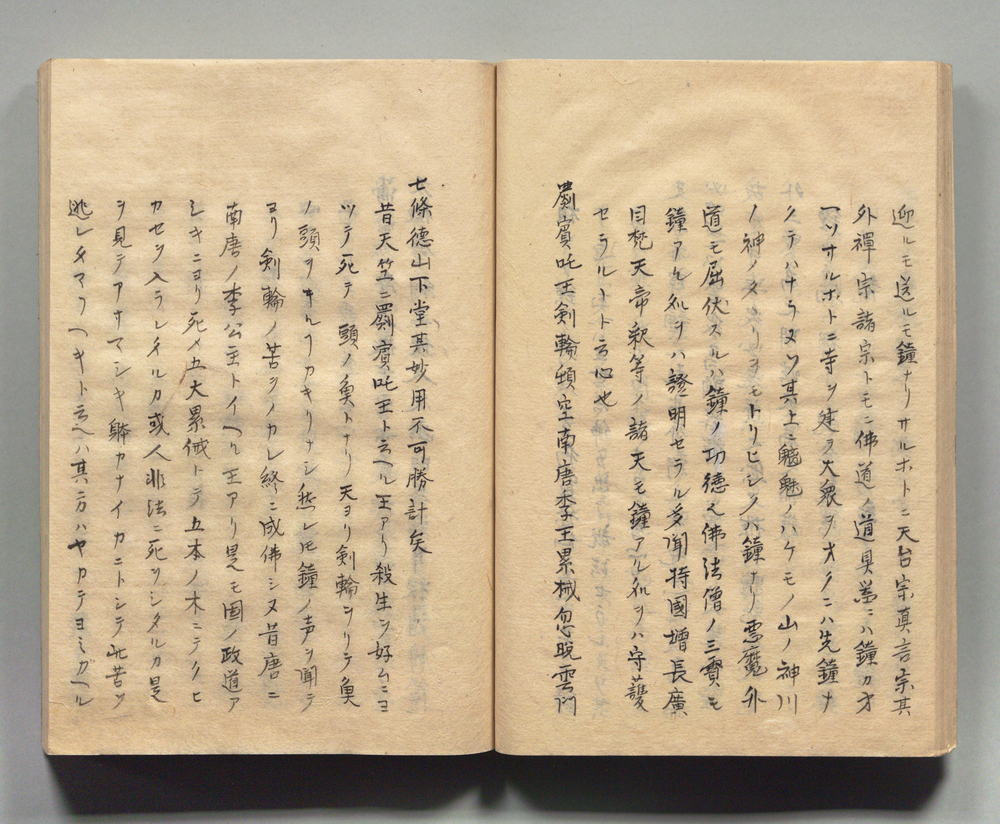 迎ルモ送ルモ鐘ナリサルホトニ天台宗真言宗其
外禪宗諸宗トモニ佛道ノ道具ニハ鐘カオ
一ツサルホトニ寺ヲ建ヲ大衆ヲオクニハ先鐘ナ
クテハナラヌソ其上ニ魑魅ノハケモノ山ノ神川
ノ神ノタヽリヲモトリヒシクハ鐘ナリ悪魔外
道モ屈伏スルハ鐘ノ功徳也佛法僧ノ三寳モ
鐘アル処ヲハ證明セラル多聞持國増長廣
目梵天帝釈等ノ諸天モ鐘アル処ヲハ守護
セラルヽト云心也
罽賓吒王剣輪頓空南唐李王累械忽脱雲門
七條德山下堂其妙用不可勝計矣
昔天竺ニ罽賓吒王ト云ヘル王アリ殺生ヲ好ムニヨ
ツテ死テ頭ノ魚トナリ天ヨリ剣輪フリテ魚
ノ頭ヲキルヿカキリナシ然レ𪜈鐘ノ声ヲ聞テ
ヨリ剣輪ノ苦ヲノカレ終ニ成佛シヌ昔唐ニ
南唐ノ李公主トイヘル王アリ是モ國ノ政道ア
シキニヨリ死〆五大累械トテ五本ノ木ニテクヒ
カセヲ入ラレタルカ或人非法ニ死ヲシタルカ是
ヲ見テアサマシキ躰カナイカニトシテ此苦ヲ
逃レタマフヘキト云ヘハ其方ハヤカテヨミガヘル